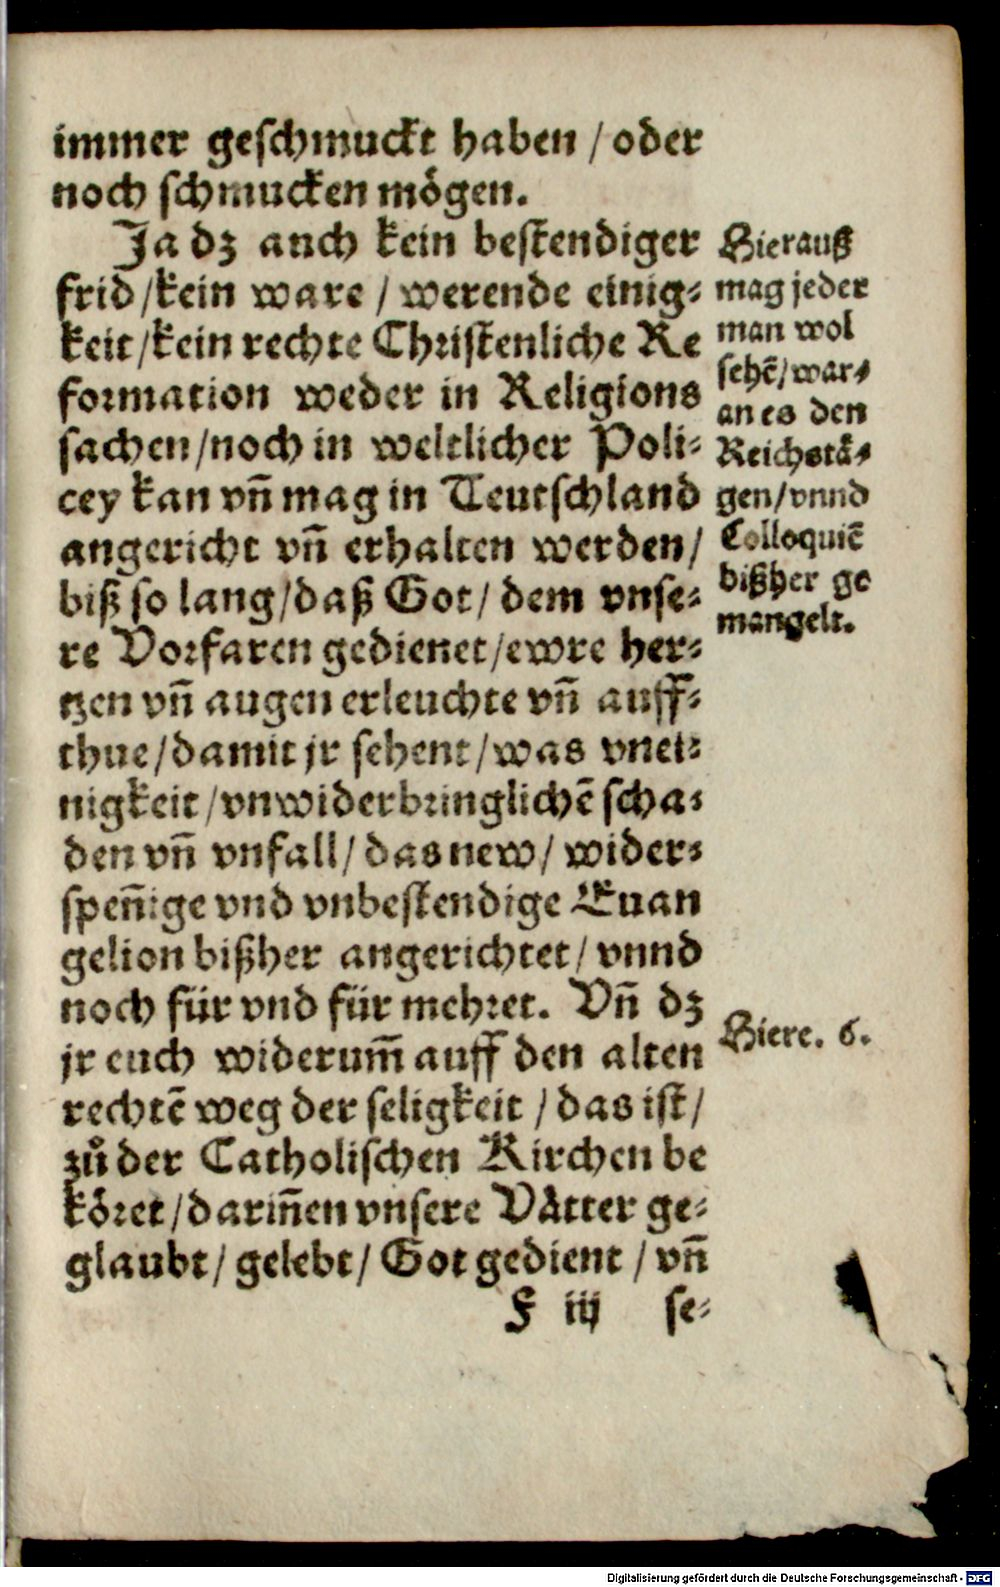 immer geschmuckt haben / oder
noch schmucken mögen.
Ja dz auch kein bestendiger
frid /kein ware / werende einig⸗
keit /kein rechte Christenliche Re
formation weder in Religions
sachen /noch in weltlicher Poli⸗
cey kan vñ mag in Teutschland
angericht vñ erhalten werden /
biß so lang /daß Got / dem vnse⸗
re Vorfaren gedienet /ewre her⸗
tzen vñ augen erleuchte vñ auff⸗
thue /damit jr sehent /was vnei⸗
nigkeit /vnwiderbringlichẽ scha⸗
den vñ vnfall / das new / wider⸗
speñige vnd vnbestendige Euan
gelion bißher angerichtet / vnnd
noch für vnd für mehret. Vñ dz
jr euch widerum̃ auff den alten
rechtẽ weg der seligkeit / das ist /
zů der Catholischen Kirchen be
köret /dariñen vnsere Vätter ge⸗
glaubt / gelebt / Got gedient / vñ
F iij se⸗
Hierauß
mag jeder
man wol
sehẽ /war⸗
an es den
Reichstä⸗
gen /vnnd
Colloquiẽ
bißher ge
mangelt.
Hiere. 6.
Digitalisierung gefördert durch die Deutsche Forschungsgemeinschaft - DFG